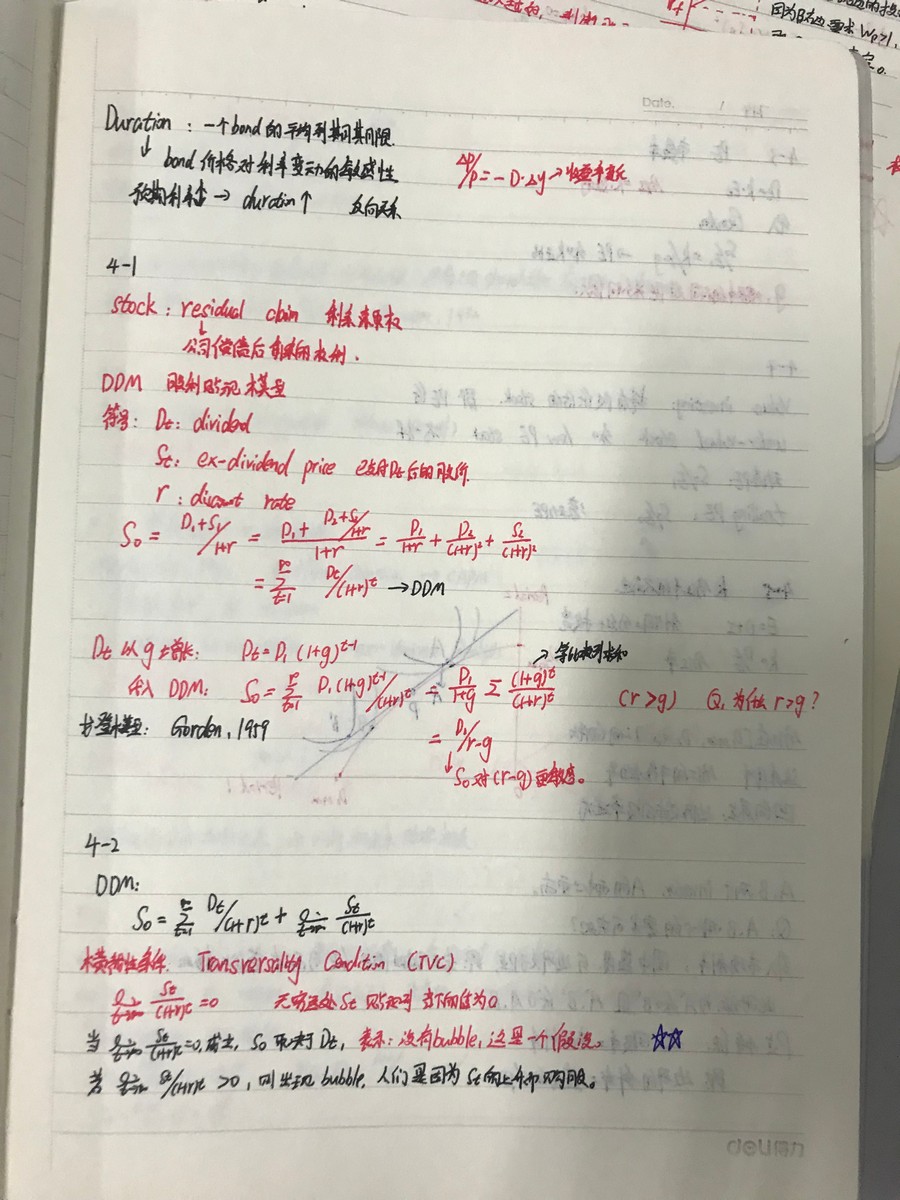 因为β右边要求 Wp>1,
Date. /
Duration : 一个bond的平均到期期限.
↓ bond价格对利率变动的敏感性
ΔP/P = -D·Δy →收益率变
预期利率↓ → duration↑ 反向关系
4-1
stock : residual claim 剩余索取权
↓ 公司偿债后剩余的权利.
DDM 股利贴现模型
符号: Dt: dividend
St: ex-dividend price 已支付Dt后的股价.
r : discount rate
S₀ = D₁+S₁/1+r = D₁+ D₂+S₂/1+r / 1+r = D₁/1+r + D₂/(1+r)² + S₂/(1+r)²
= ∞Σt=1 Dt/(1+r)^t → DDM
Dt 以g增长: Dt = D₁(1+g)^t-1
→ 等比数列求和
代入DDM: S₀ = ∞Σt=1 D₁(1+g)^t-1/(1+r)^t = D₁/1+g Σ (1+g)^t/(1+r)^t (r>g) Q, 为什么r>g?
戈登模型: Gorden, 1959
= D₁/r-g
↓ S₀对(r-g)更敏感。
4-2
DDM:
S₀ = ∞Σt=1 Dt/(1+r)^t + lim t→∞ St/(1+r)^t
横截性条件 Transversality Condition (TVC)
lim t→∞ St/(1+r)^t = 0 无穷远处St贴现到当下的值为0.
当 lim t→∞ St/(1+r)^t = 0, 成立, S₀取决于Dt, 表示: 没有bubble, 这是一个假设。 ☆☆
若 lim t→∞ St/(1+r)^t > 0, 则出现bubble, 人们是因为St的上升而购股。
deli得力